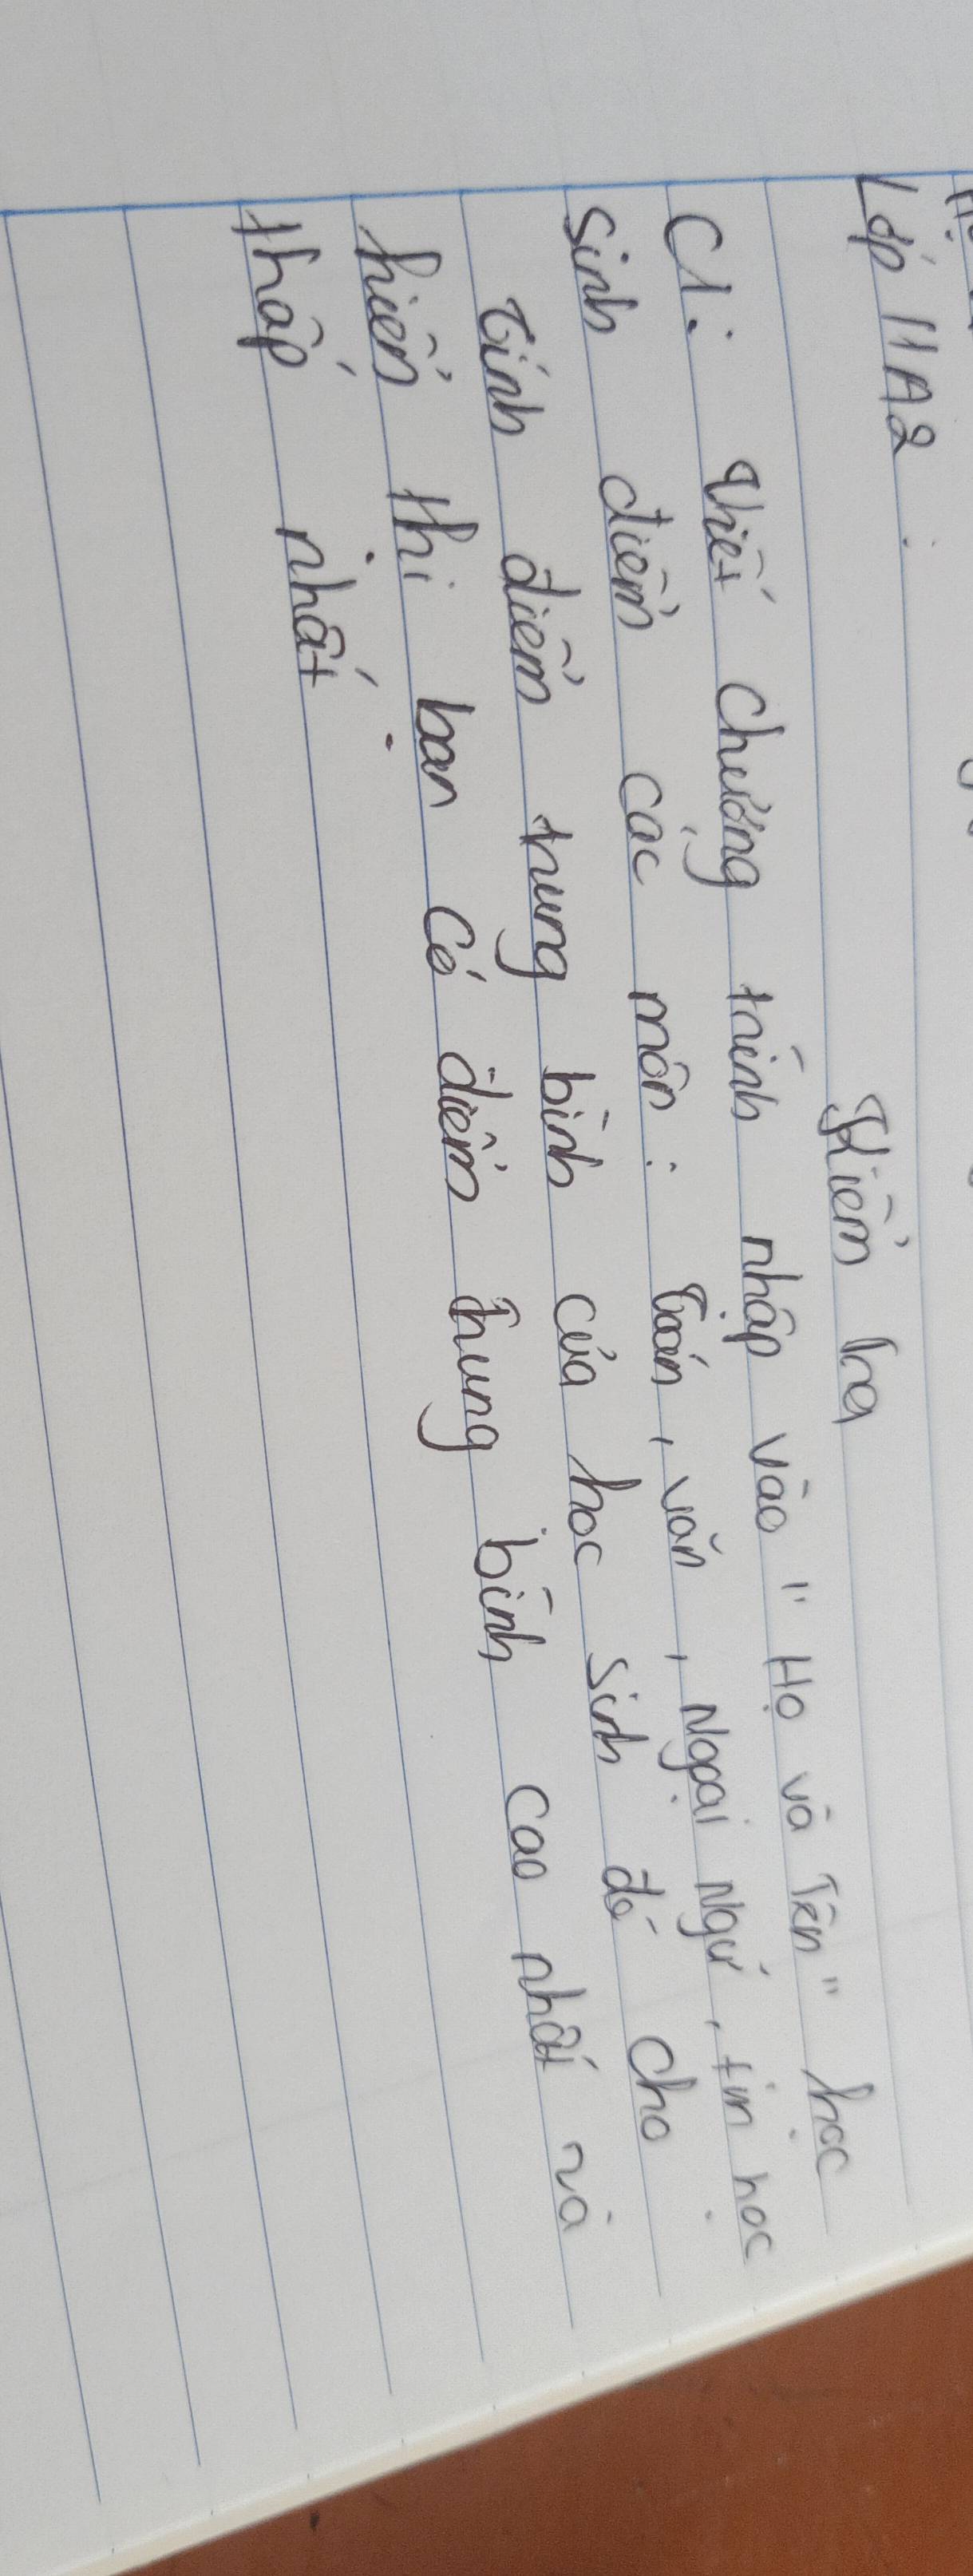 Lớp 11A2
Kiểm tra
C1. Viết chương trình nhập vào "Họ và Tên" học
sinh điểm các môn: Toán, văn, Ngoại Ngữ, tin học
Tính điểm trung bình của học sinh đó cho
hiển thị bạn có điểm trung bình cao nhất và
thấp nhất